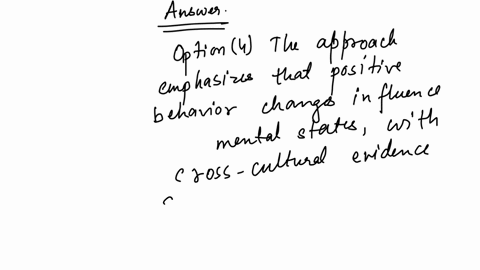 Answer.
Option (4) The approach
emphasizes that positive
behavior changes influence
mental states, with
cross-cultural evidence